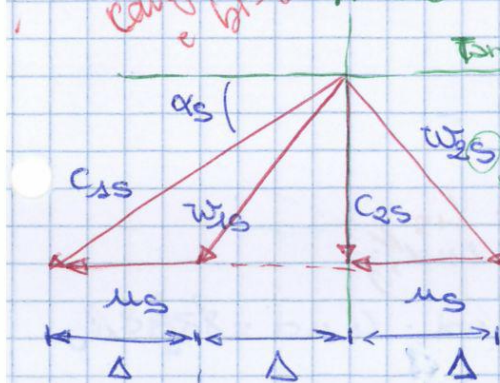 e
αs
W2s
C1s
W1s
C2s
us
us
Δ
Δ
Δ